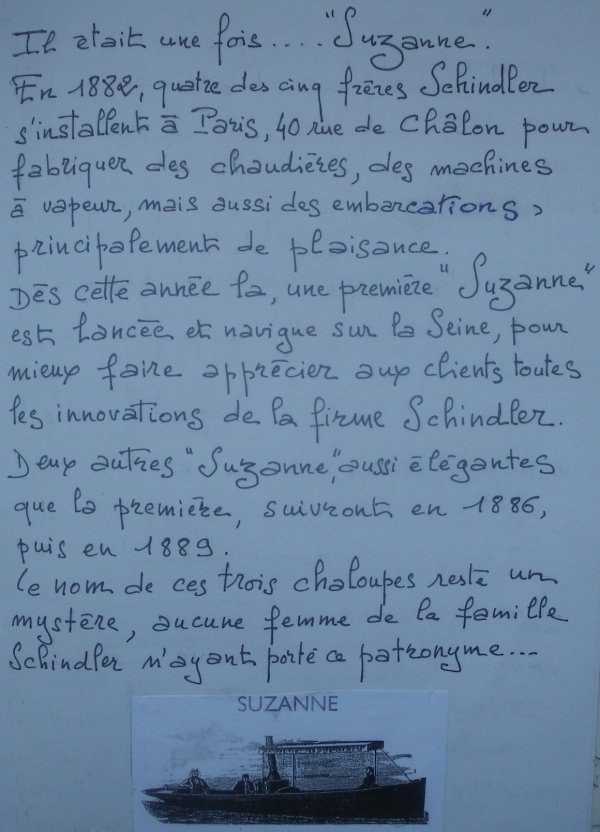 Il était une fois .... "Suzanne".
En 1882, quatre des cinq frères Schindler
s'installent à Paris, 40 rue de Châlon pour
fabriquer des chaudières, des machines
à vapeur, mais aussi des embarcations,
principalement de plaisance.
Dès cette année la, une première "Suzanne"
est lancée et navigue sur la Seine, pour
mieux faire apprécier aux clients toutes
les innovations de la firme Schindler.
Deux autres "Suzanne", aussi élégantes
que la première, suivront en 1886,
puis en 1889.
Le nom de ces trois chaloupes reste un
mystère, aucune femme de la famille
Schindler n'ayant porté ce patronyme...
SUZANNE